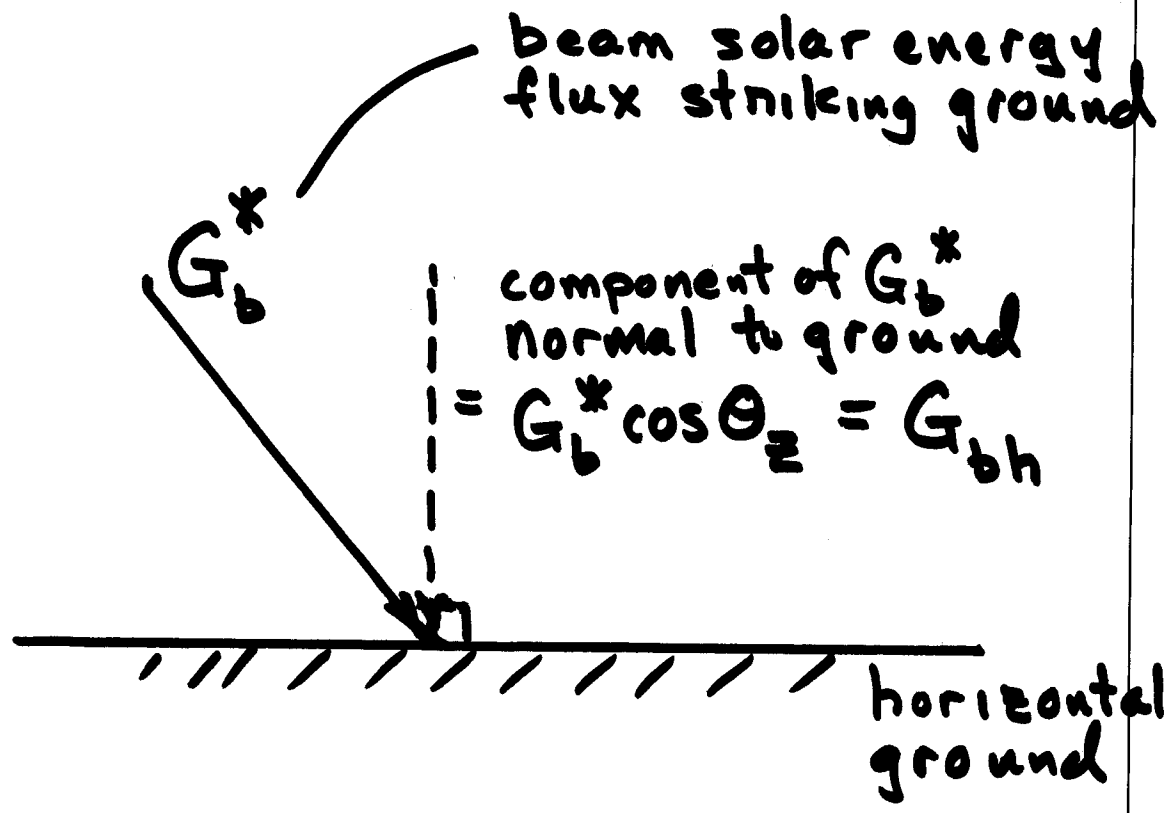 beam solar energy
flux striking ground
G_b^*
component of G_b^*
normal to ground
= G_b^* cos θ_z = G_bh
horizontal
ground